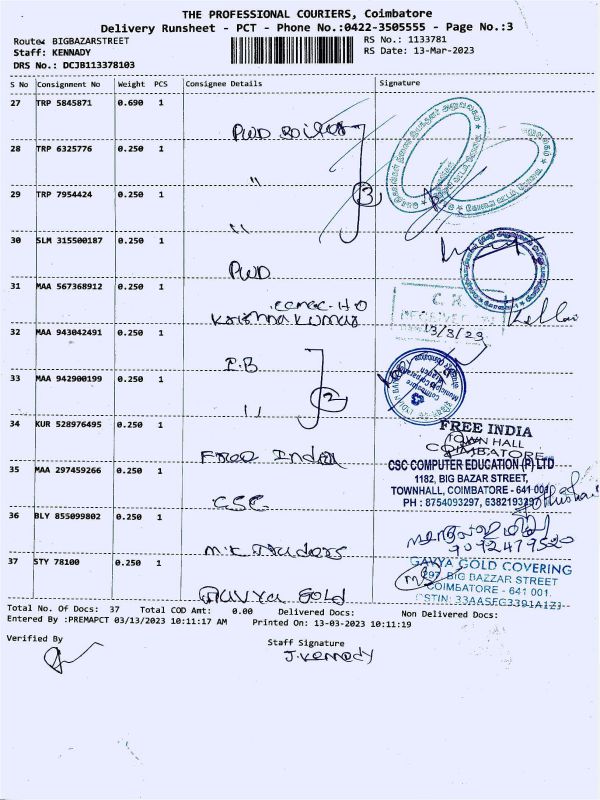 THE PROFESSIONAL COURIERS, Coimbatore
Delivery Runsheet - PCT - Phone No.:0422-3505555 - Page No.:3
Route: BIGBAZARSTREET RS No.: 1133781
Staff: KENNADY RS Date: 13-Mar-2023
DRS No.: DCJB113378103
S No Consignment No Weight PCS Consignee Details Signature
27 TRP 5845871 0.690 1
PWD
28 TRP 6325776 0.250 1
"
29 TRP 7954424 0.250 1
3
"
30 SLM 315500187 0.250 1
PWD
31 MAA 567368912 0.250 1
Krishna Kumar
32 MAA 943042491 0.250 1
13/3/23
P.B
33 MAA 942900199 0.250 1
2
"
34 KUR 528976495 0.250 1
FREE INDIA
TOWN HALL
COIMBATORE
Free India
35 MAA 297459266 0.250 1
CSC COMPUTER EDUCATION (P) LTD
1182, BIG BAZAR STREET,
TOWNHALL, COIMBATORE - 641 001
PH : 8754093297,
CSC
36 BLY 855099802 0.250 1
M.K Traders
9092479520
37 STY 78100 0.250 1
GAVYA GOLD COVERING
297, BIG BAZZAR STREET
COIMBATORE - 641 001.
Gavya Gold
Total No. Of Docs: 37 Total COD Amt: 0.00 Delivered Docs: Non Delivered Docs:
Entered By :PREMAPCT 03/13/2023 10:11:17 AM Printed On: 13-03-2023 10:11:19
Verified By Staff Signature
J. Kennady